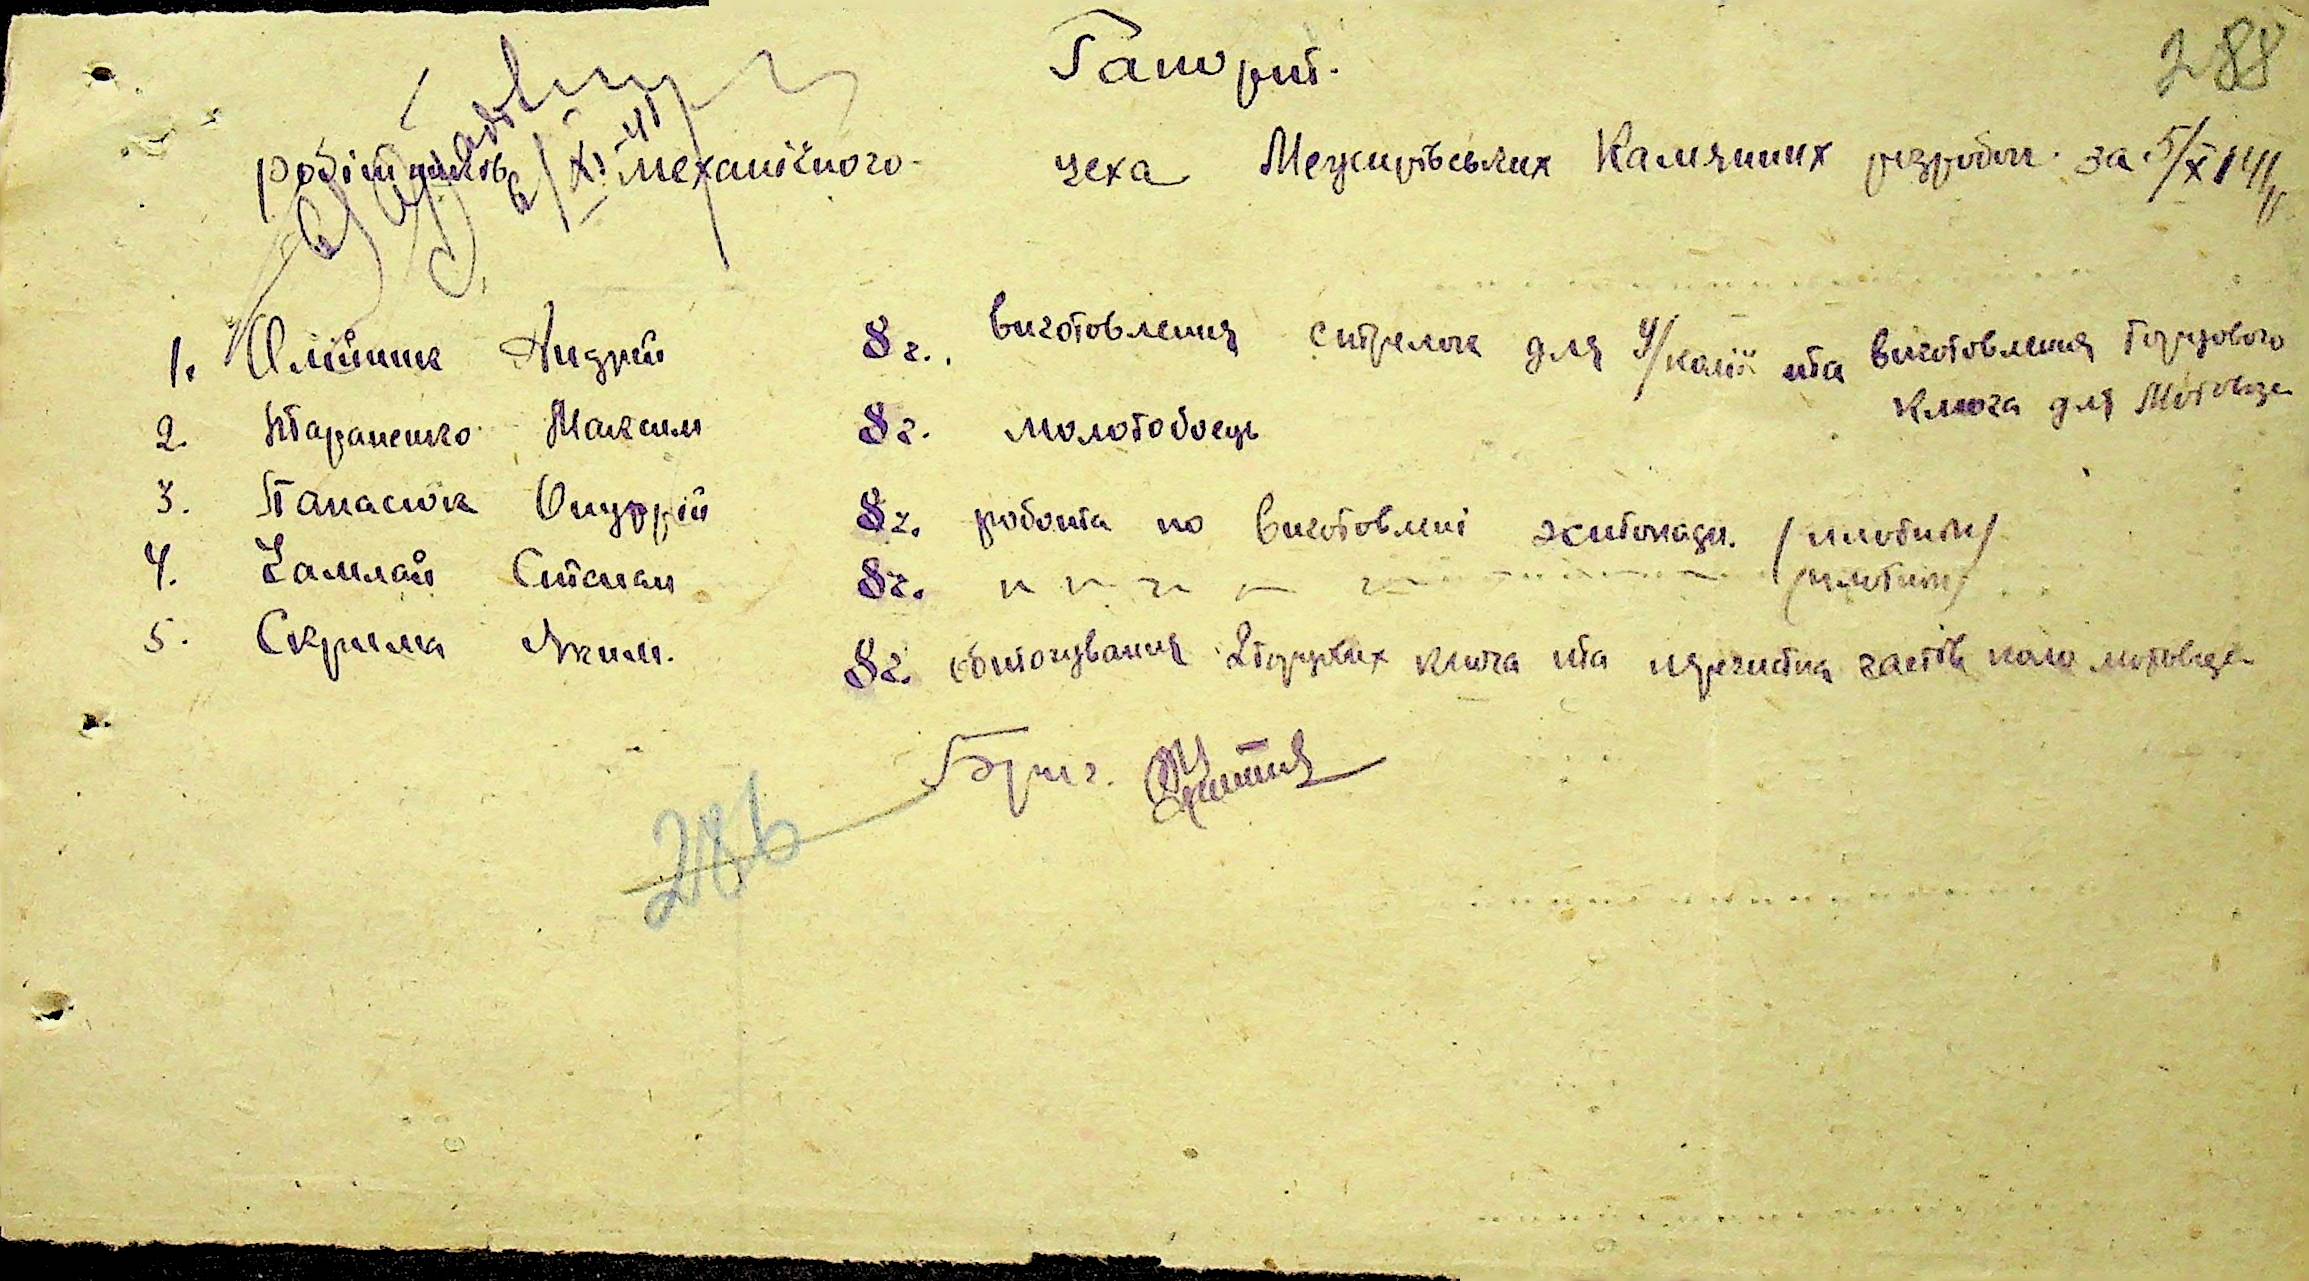 288
Рапорт.
робітників механічного цеха Межирівських Камяних розробок за 5/X 41
6/XI-41
1. Олійник Андрій 8 г. виготовлення стрелок для у/колії та виготовлення торцового
ключа для Мотовоза
2. Тараненко Максим 8 г. молотобоєць
3. Панасюк Онуфрій 8 г. робота по виготовлені (плотник)
4. Чамлай Степан 8 г. (плотник)
5. Скрипка Яким. 8 г. обточування 2 торцових ключа та частів коло мотовоза
Бриг.
286